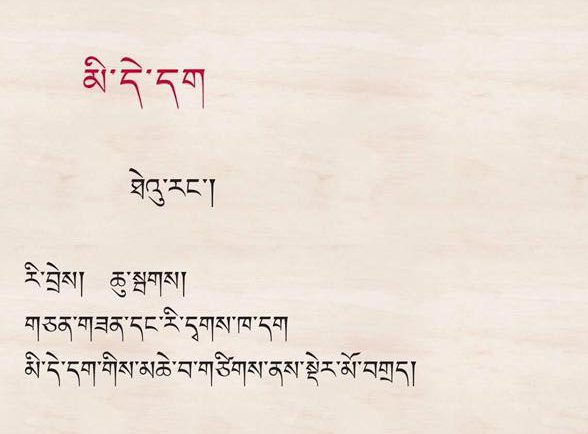 མི་དེ་དག
ཐེའུ་རང་།
རི་བྲེས། ཆུ་སྦགས།
གཅན་གཟན་དང་རི་དྭགས་ཁ་དག
མི་དེ་དག་གིས་མཆེ་བ་གཙིགས་ནས་སྡེར་མོ་བགྲད།